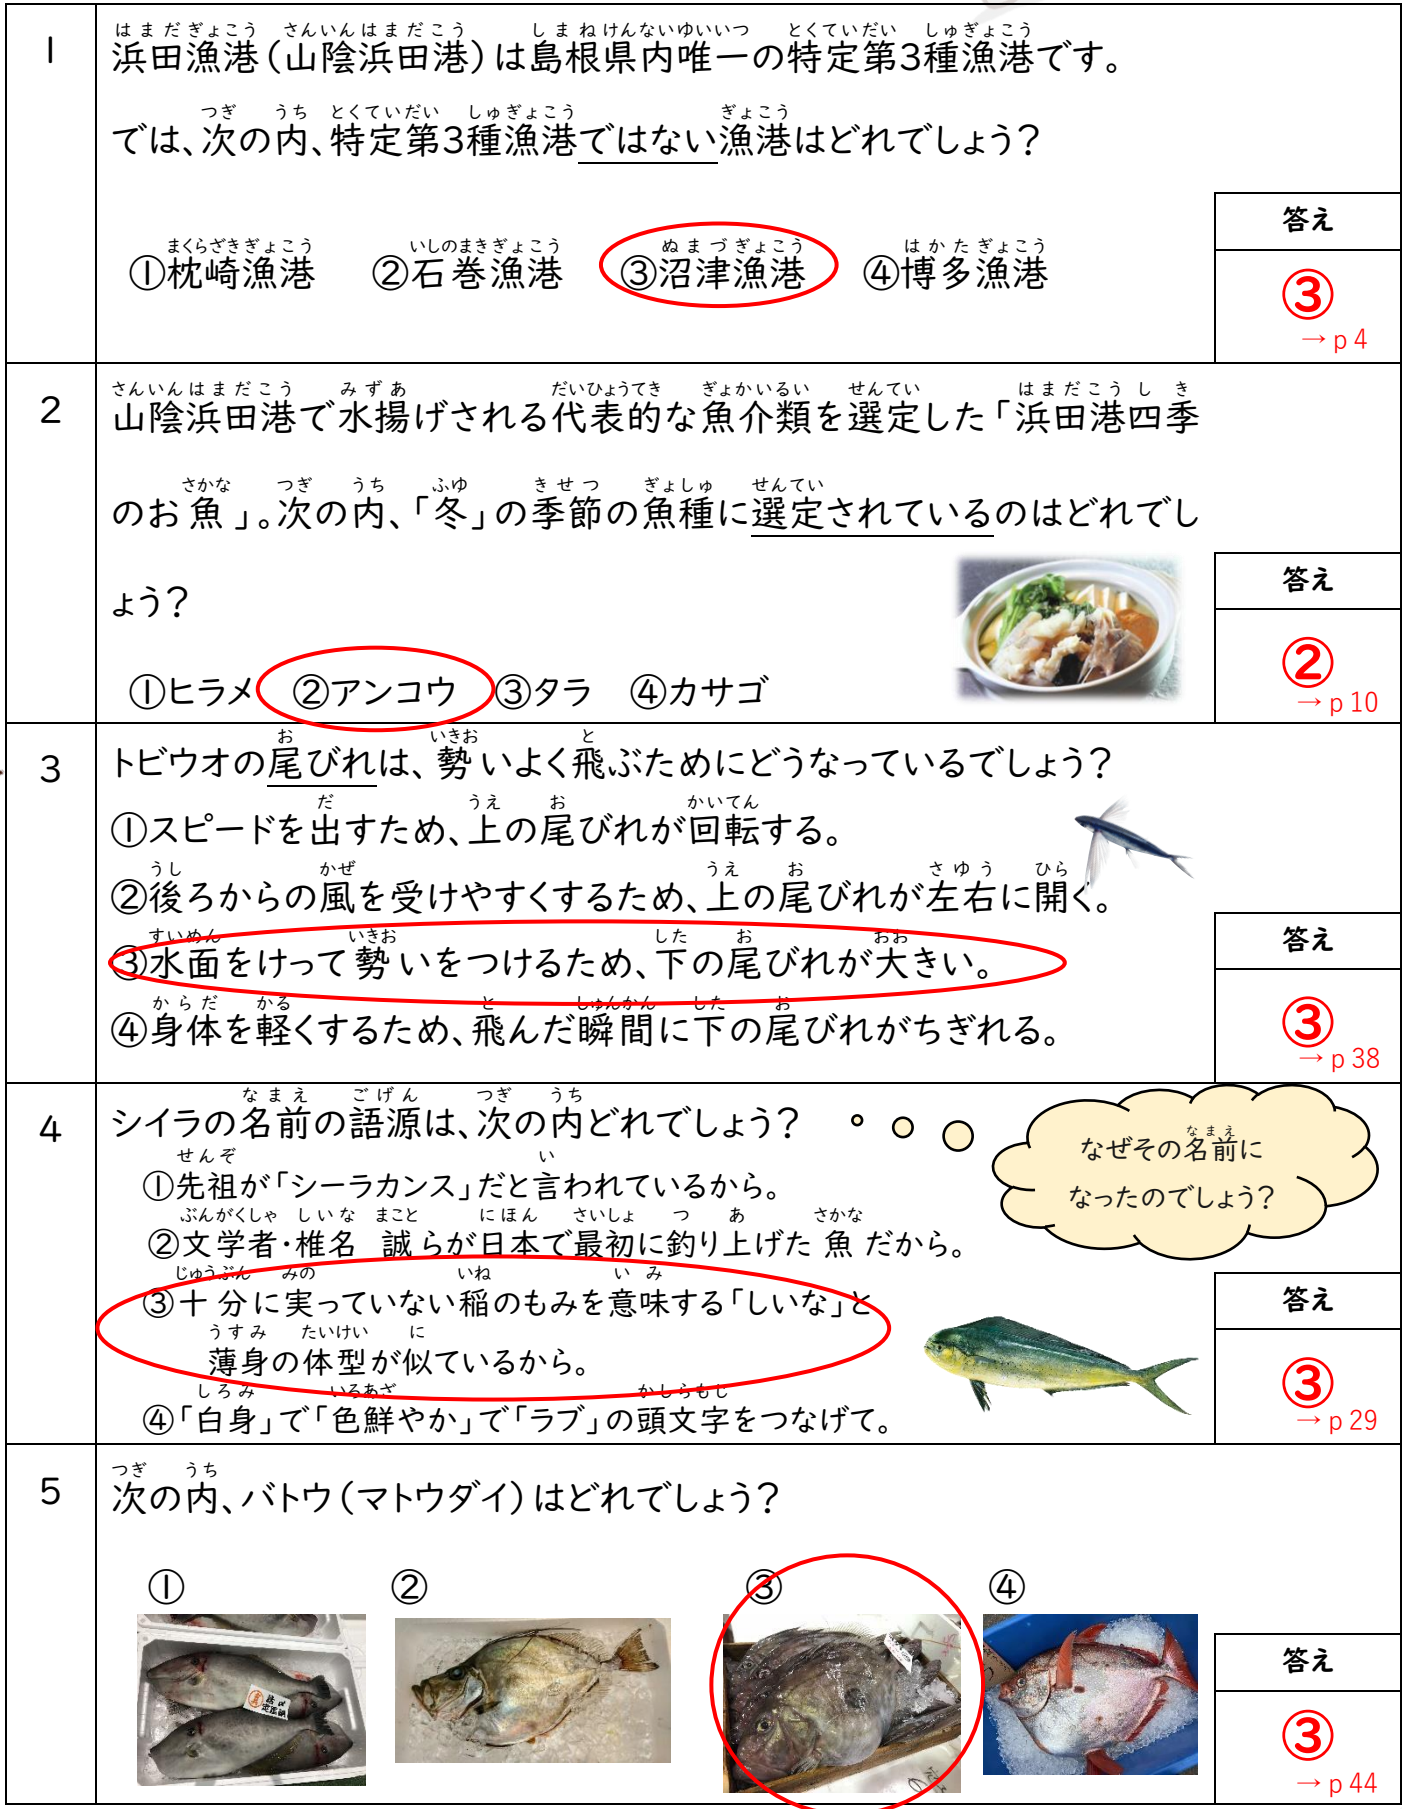 1
浜田漁港(山陰浜田港)は島根県内唯一の特定第3種漁港です。
では、次の内、特定第3種漁港ではない漁港はどれでしょう?
①枕崎漁港 ②石巻漁港 ③沼津漁港 ④博多漁港
答え
③
→p4
2
山陰浜田港で水揚げされる代表的な魚介類を選定した「浜田港四季
のお魚」。次の内、「冬」の季節の魚種に選定されているのはどれでし
ょう?
①ヒラメ ②アンコウ ③タラ ④カサゴ
答え
②
→p10
3
トビウオの尾びれは、勢いよく飛ぶためにどうなっているでしょう?
①スピードを出すため、上の尾びれが回転する。
②後ろからの風を受けやすくするため、上の尾びれが左右に開く。
③水面をけって勢いをつけるため、下の尾びれが大きい。
④身体を軽くするため、飛んだ瞬間に下の尾びれがちぎれる。
答え
③
→p38
4
シイラの名前の語源は、次の内どれでしょう?
なぜその名前に
なったのでしょう?
①先祖が「シーラカンス」だと言われているから。
②文学者・椎名 誠らが日本で最初に釣り上げた魚だから。
③十分に実っていない稲のもみを意味する「しいな」と
薄身の体型が似ているから。
④「白身」で「色鮮やか」で「ラブ」の頭文字をつなげて。
答え
③
→p29
5
次の内、バトウ(マトウダイ)はどれでしょう?
① ② ③ ④
答え
③
→p44